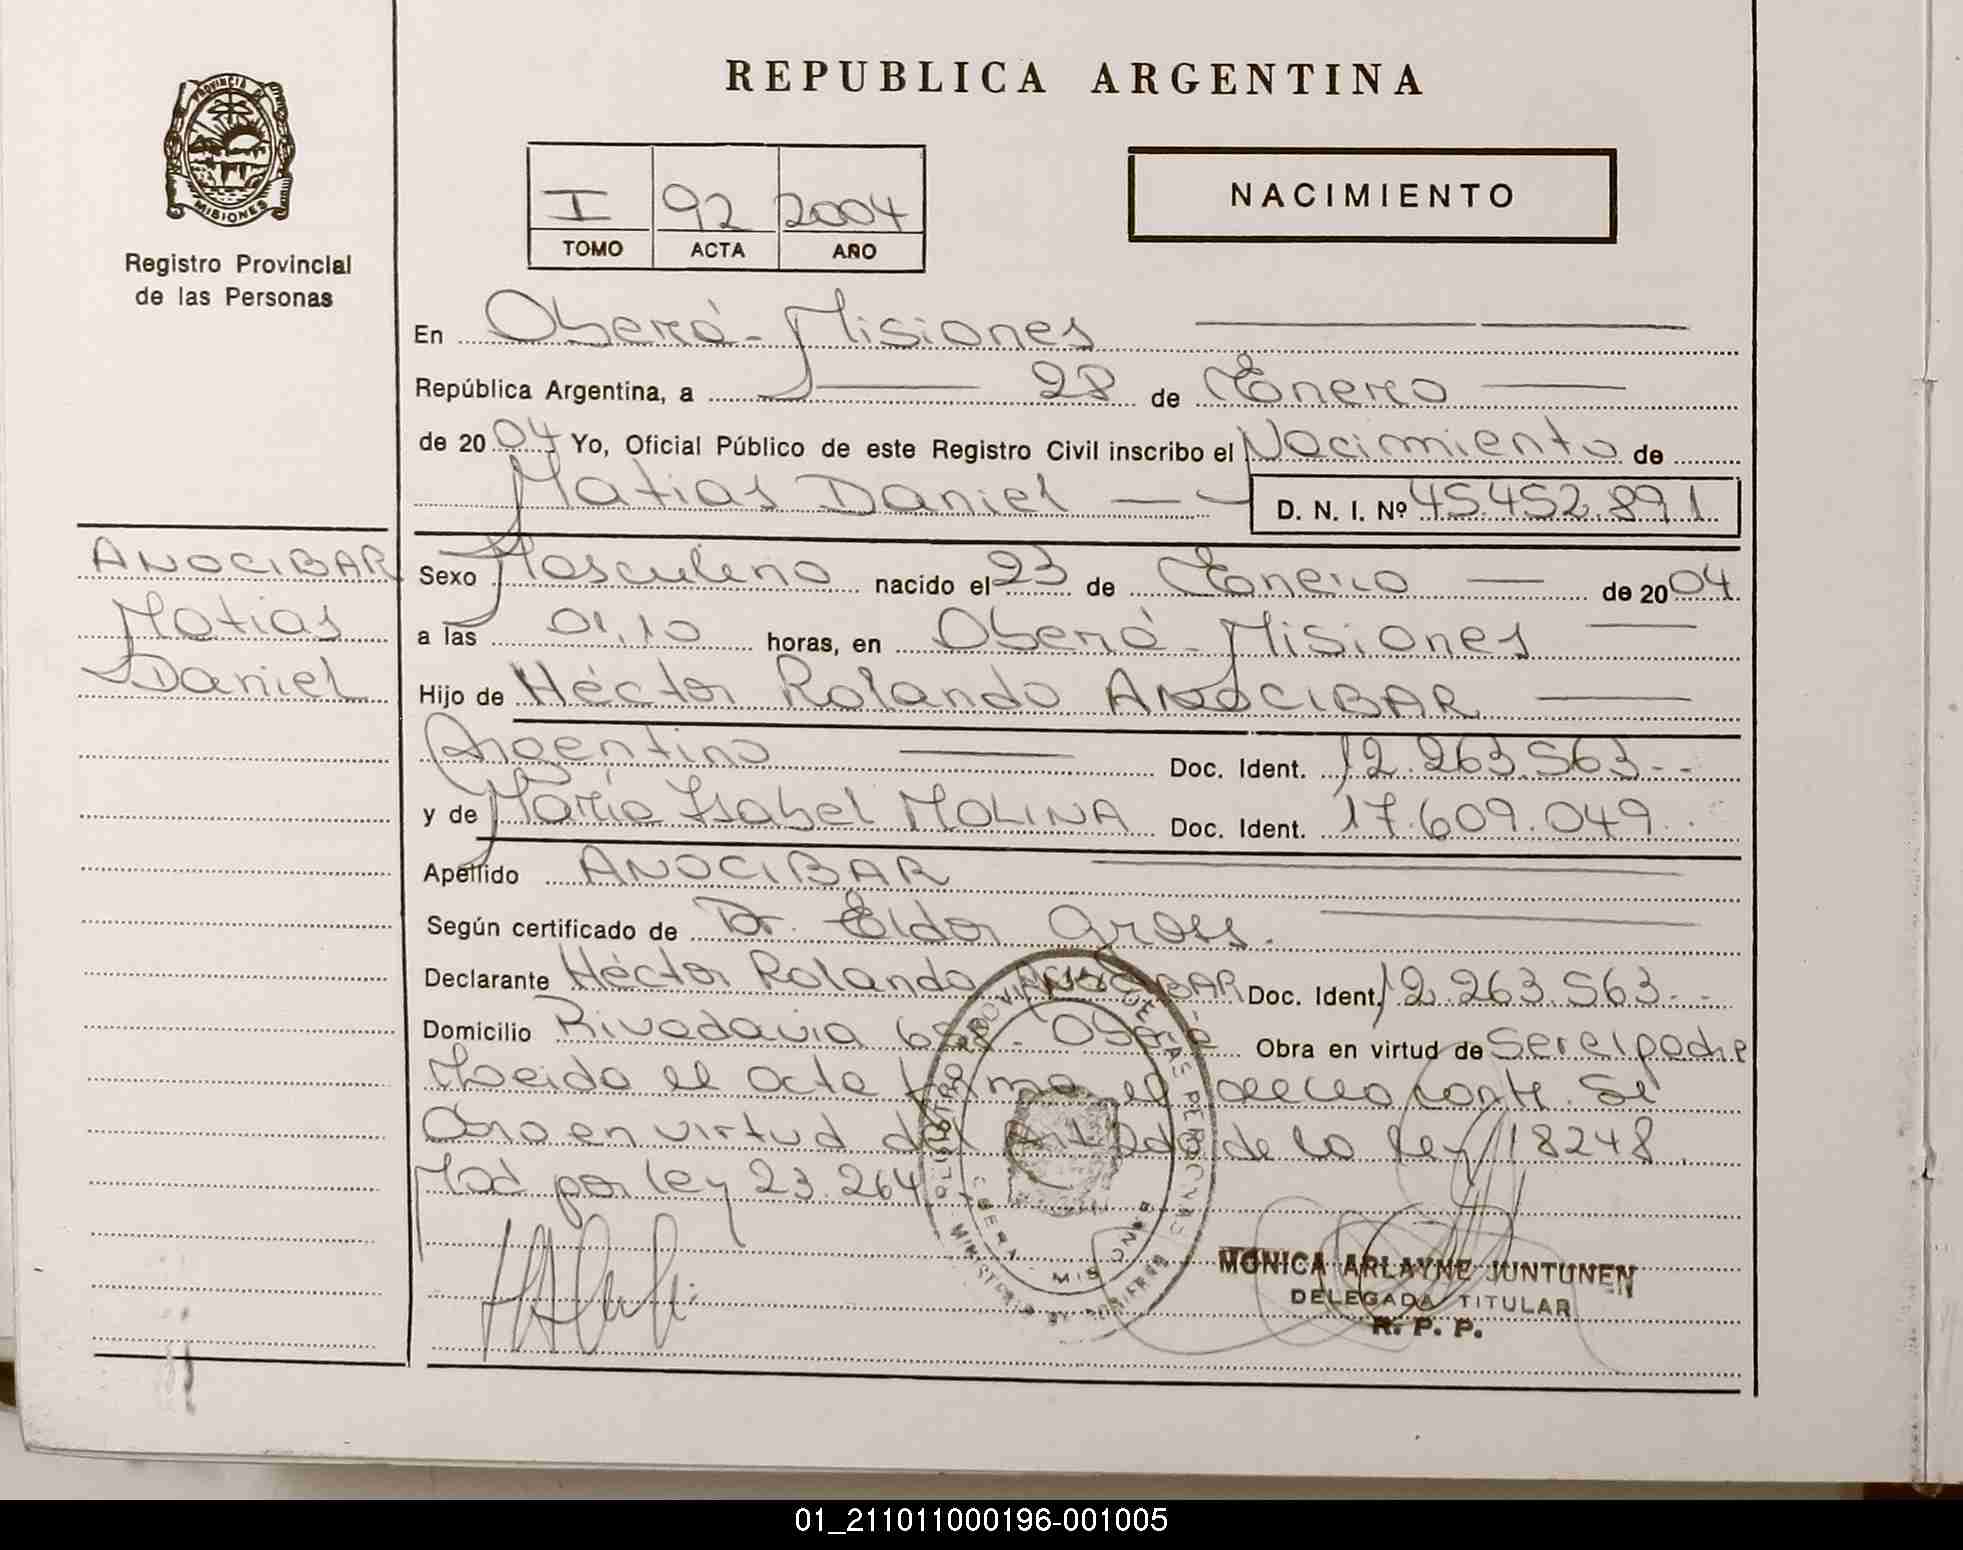 REPUBLICA ARGENTINA
PROVINCIA DE
MISIONES
Registro Provincial
de las Personas
I 92 2004
TOMO ACTA AÑO
NACIMIENTO
En Oberá - Misiones
República Argentina, a 28 de Enero
de 2004 Yo, Oficial Público de este Registro Civil inscribo el Nacimiento de
Matias Daniel D. N. I. Nº 45.452.891
ANOCIBAR
Matias
Daniel
Sexo Masculino nacido el 23 de Enero de 2004
a las 01,10 horas, en Oberá - Misiones
Hijo de Héctor Rolando ANOCIBAR
Argentino Doc. Ident. 12.263.563
y de María Isabel MOLINA Doc. Ident. 17.609.049
Apellido ANOCIBAR
Según certificado de Dr. Eldor Gross.
Declarante Héctor Rolando ANOCIBAR Doc. Ident. 12.263.563
Domicilio Rivadavia - Oberá Obra en virtud de Ser el padre
el acta firma el
Obra en virtud del Art 2do de la Ley 18248
Mod por Ley 23.264
MONICA ARLAYNE JUNTUNEN
DELEGADA TITULAR
R. P. P.
01_211011000196-001005